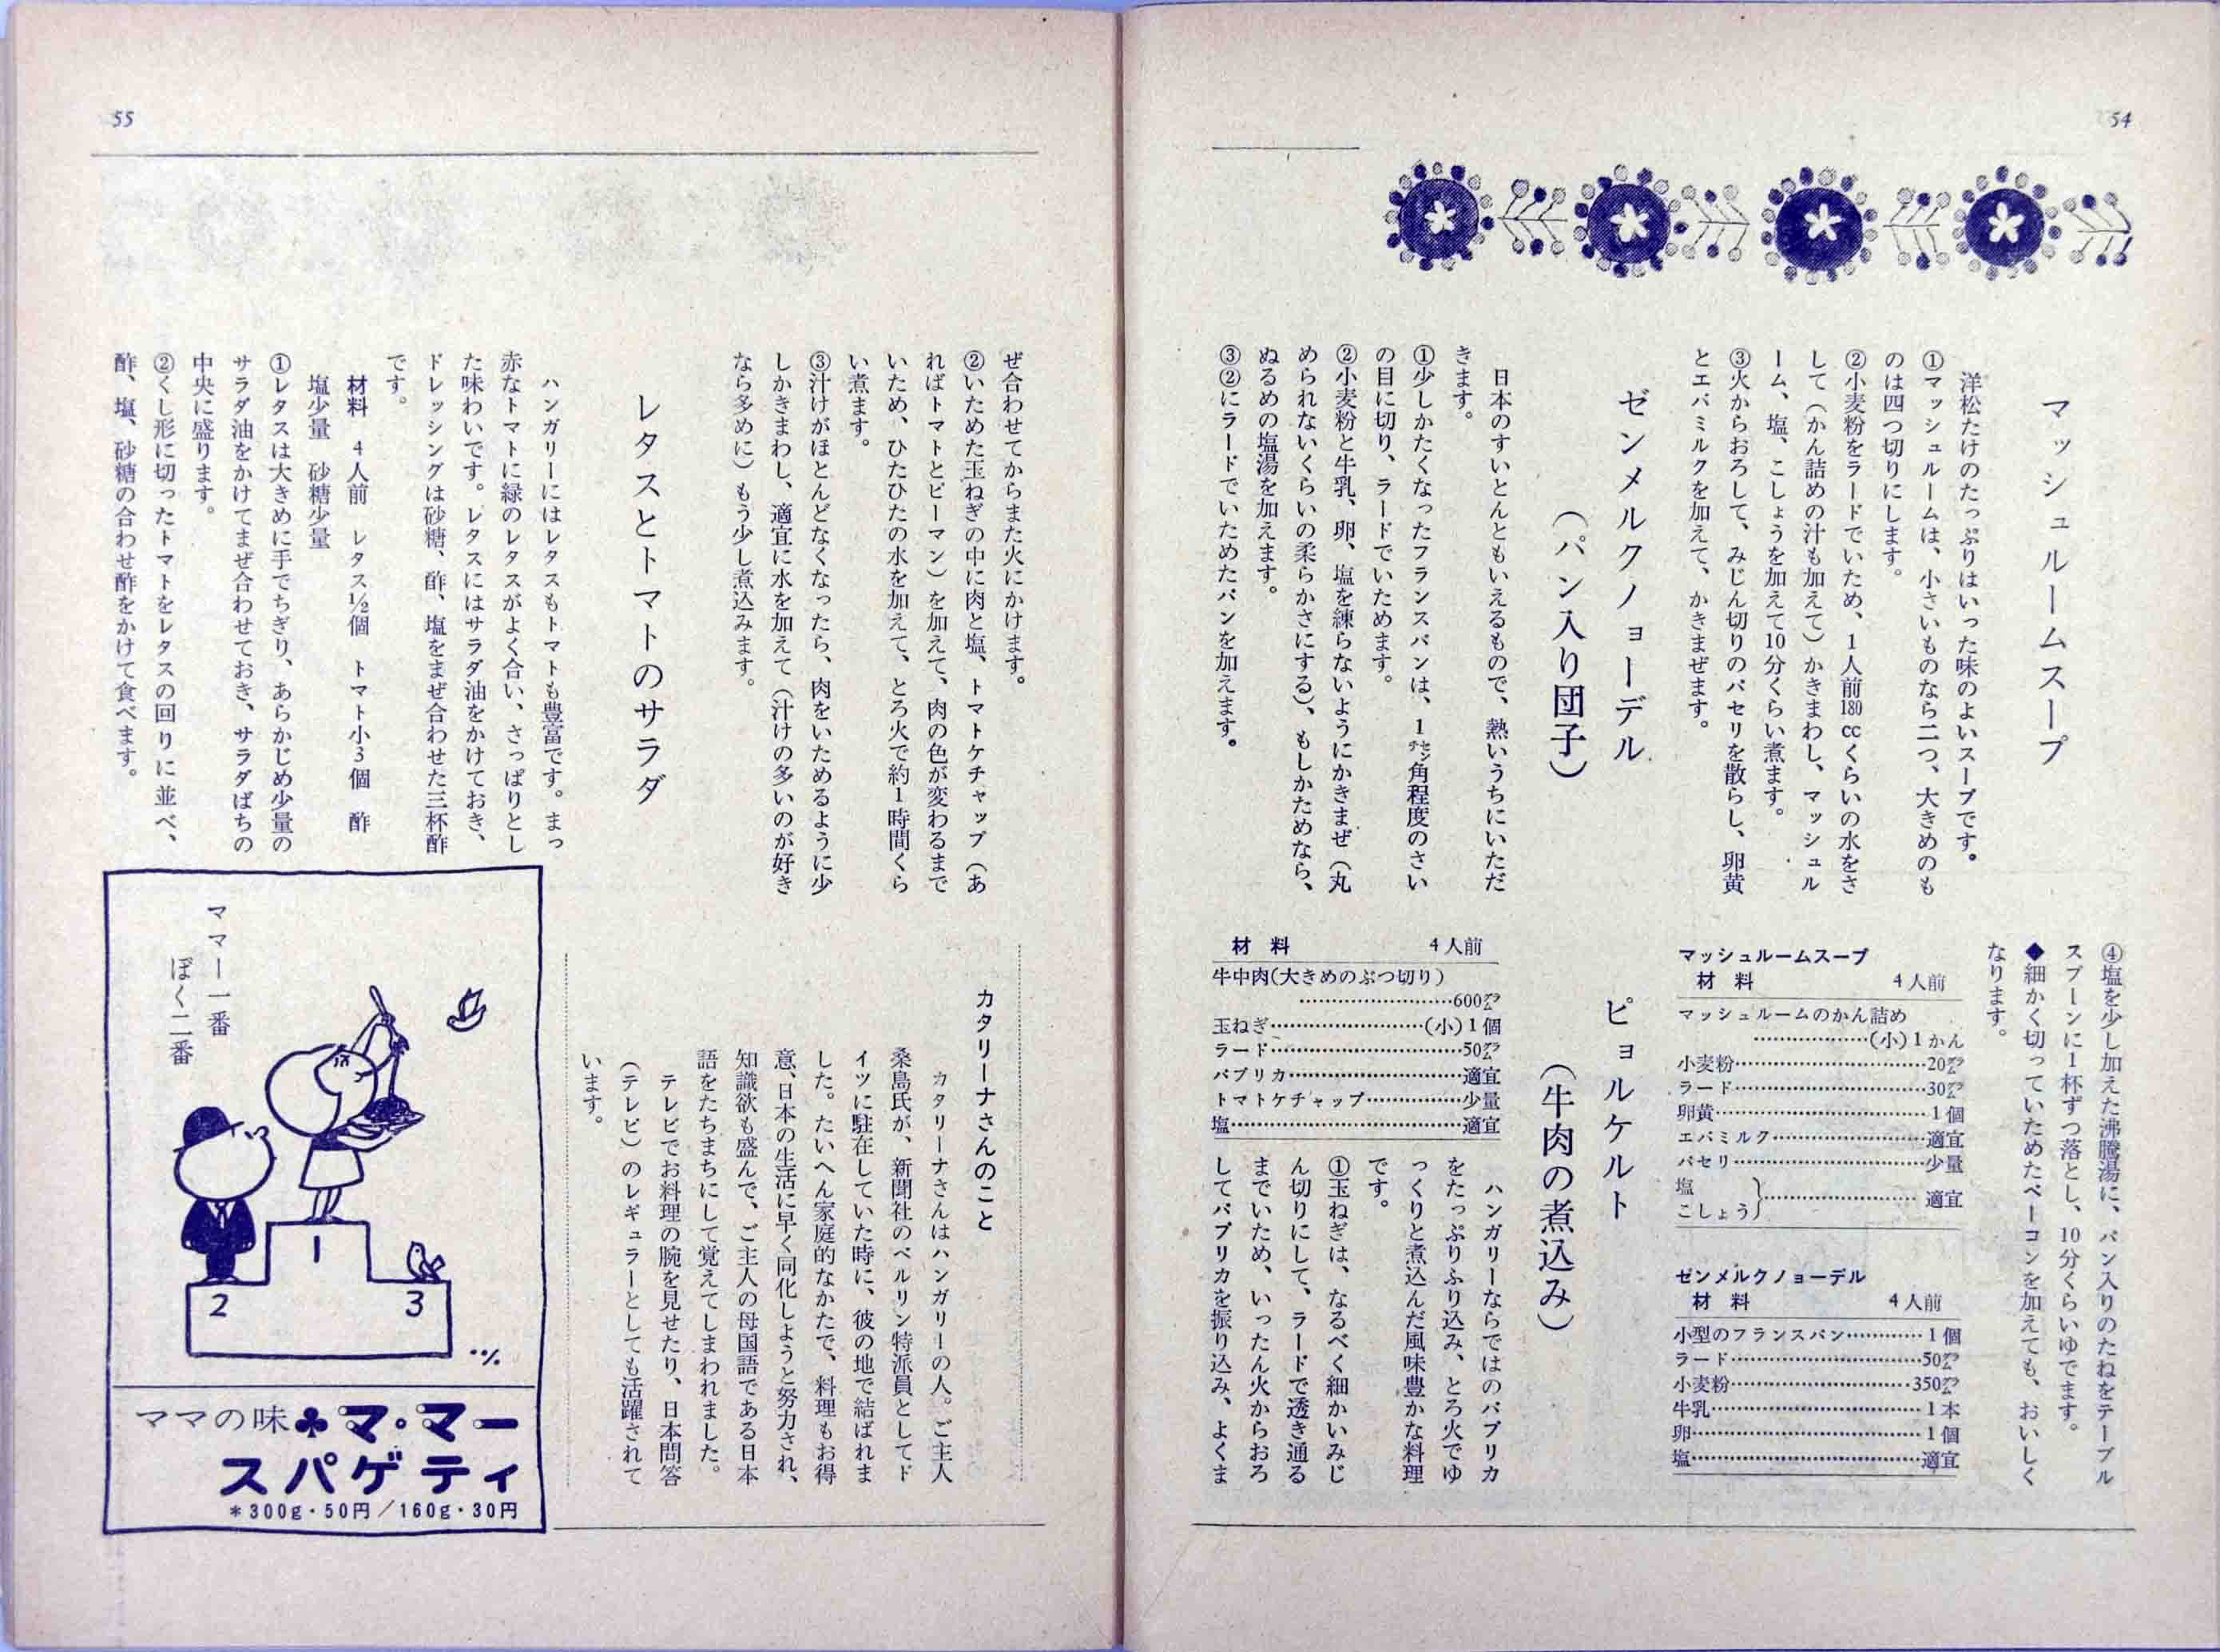 54
マッシュルームスープ
洋松たけのたっぷりはいった味のよいスープです。
①マッシュルームは、小さいものなら二つ、大きめのも
のは四つ切りにします。
②小麦粉をラードでいため、1人前180ccくらいの水をさ
して（かん詰めの汁も加えて）かきまわし、マッシュル
ーム、塩、こしょうを加えて10分くらい煮ます。
③火からおろして、みじん切りのパセリを散らし、卵黄
とエバミルクを加えて、かきまぜます。
ゼンメルクノョーデル
（パン入り団子）
日本のすいとんともいえるもので、熱いうちにいただ
きます。
①少しかたくなったフランスパンは、1センチ角程度のさい
の目に切り、ラードでいためます。
②小麦粉と牛乳、卵、塩を練らないようにかきまぜ（丸
められないくらいの柔らかさにする）、もしかためなら、
ぬるめの塩湯を加えます。
③②にラードでいためたパンを加えます。
④塩を少し加えた沸騰湯に、パン入りのたねをテーブル
スプーンに1杯ずつ落とし、10分くらいゆでます。
◆細かく切っていためたベーコンを加えても、おいしく
なります。
マッシュルームスープ
材料 4人前
マッシュルームのかん詰め
……………(小)1かん
小麦粉……………20グラム
ラード……………30グラム
卵黄……………1個
エバミルク……………適宜
パセリ……………少量
塩
こしょう}……………適宜
ゼンメルクノョーデル
材料 4人前
小型のフランスパン…………1個
ラード……………50グラム
小麦粉……………350グラム
牛乳……………1本
卵……………1個
塩……………適宜
ピョルケルト
（牛肉の煮込み）
材料 4人前
牛中肉(大きめのぶつ切り)
……………600グラム
玉ねぎ……………(小)1個
ラード……………50グラム
パプリカ……………適宜
トマトケチャップ……………少量
塩……………適宜
ハンガリーならではのパプリカ
をたっぷりふり込み、とろ火でゆ
っくりと煮込んだ風味豊かな料理
です。
①玉ねぎは、なるべく細かいみじ
ん切りにして、ラードで透き通る
までいため、いったん火からおろ
してパプリカを振り込み、よくま
55
ぜ合わせてからまた火にかけます。
②いためた玉ねぎの中に肉と塩、トマトケチャップ（あ
ればトマトとピーマン）を加えて、肉の色が変わるまで
いため、ひたひたの水を加えて、とろ火で約1時間くら
い煮ます。
③汁けがほとんどなくなったら、肉をいためるように少
しかきまわし、適宜に水を加えて（汁けの多いのが好き
なら多めに）もう少し煮込みます。
レタスとトマトのサラダ
ハンガリーにはレタスもトマトも豊富です。まっ
赤なトマトに緑のレタスがよく合い、さっぱりとし
た味わいです。レタスにはサラダ油をかけておき、
ドレッシングは砂糖、酢、塩をまぜ合わせた三杯酢
です。
材料　4人前　レタス1/2個　トマト小3個　酢
塩少量　砂糖少量
①レタスは大きめに手でちぎり、あらかじめ少量の
サラダ油をかけてまぜ合わせておき、サラダばちの
中央に盛ります。
②くし形に切ったトマトをレタスの回りに並べ、
酢、塩、砂糖の合わせ酢をかけて食べます。
カタリーナさんのこと
カタリーナさんはハンガリーの人。ご主人
桑島氏が、新聞社のベルリン特派員としてド
イツに駐在していた時に、彼の地で結ばれま
した。たいへん家庭的なかたで、料理もお得
意、日本の生活に早く同化しようと努力され、
知識欲も盛んで、ご主人の母国語である日本
語をたちまちにして覚えてしまわれました。
テレビでお料理の腕を見せたり、日本問答
（テレビ）のレギュラーとしても活躍されて
います。
ママー一番
ぼく二番
1
2
3
ママの味♣マ・マー
スパゲティ
*300g・50円／160g・30円